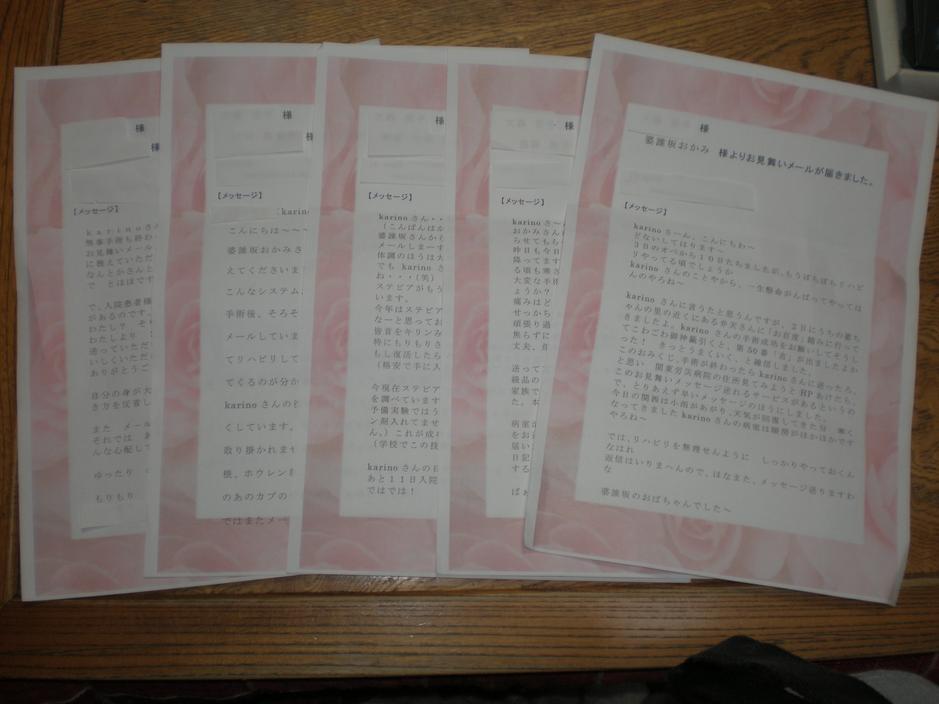 様
【メッセージ】
karinoさん
無事手術も終わ
お見舞いメール
に教えていただ
なんとかさんと
で とほほです
で、入院患者様
があるのです。
わたし？
わたしより
送っていただ
いしくいただ
ありがとうご
自分の身が大
き方を反省し
また メール
それでは あ
んな心配して
ゆったり
もりもり
様
【メッセージ】
karin
こんにちは～～
婆誰坂おかみさ
えてくださいま
こんなシステム、
手術後、そろそ
メールしていま
てリハビリして
てくるのが分か
karino さんの
くしています。
取り掛かれませ
根、ホウレン
のあのカブの
ではまたメー
様
【メッセージ】
karino さん・・
（こんばんは
婆誰坂さんから
メールしまーす
体調のほうは大
でも karino さ
ね・・・（笑）
ステビアがもう
います。
今年はステビア
なーと思ってお
皆音をキリンみ
特にもりもりさ
もし復活したら
（格安で手に入
今現在ステビア
を調べています
予備実験ではう
ン剤入れてませ
ん。）これが成
（学校でこの技
karino さんの
あと１１日入院
ではでは！
様
【メッセージ】
karino さ～
おかみさん
らせてもら
昨日も今日
降ってます
る頃も寒さ
大変な手術
ょうか？
痛みはど
せっかち
頑張り過
焦らずに
丈夫、
送って
級品の
家族で
た。本
病室
をお
届い
日記
する
ばぁ
様
婆誰坂おかみ 様よりお見舞いメールが届きました。
【メッセージ】
karino さーん、こんにちわ～
どないしてはります～
３日のオペから１０日たちましたが、もうぼちぼちリハビ
リやってる頃でしょうか
karino さんのことやから、一生懸命がんばってやっては
んのやろね～
karino さんに言うたと思うんですが、２日にうちの墓ち
ゃんの里の近くにある弁天さんに「お百度」踏みに行って
きましたよ。karino さんの手術成功をお願いしてそうし
てこわごわ御神籤引くと、第 50 番「吉」が出ましたよか
った！ きっとうまくいく、と確信しました。
このおみくじ、手術が終わったら karino さんに送ったろ、
と思い 関東労災病院の住所見てみようと HP あけたら、
このお見舞いメッセージ送れるサービスがあるというの
で、とりあえず早いメッセージのほうにしました。
今日の関西は小雨があがり、天気が回復してきた分 寒く
なってきました karino さんの病室は暖房がほかほかです
やろね～
では、リハビリを無理せんように しっかりやっておくん
なはれ
返信はいりまへんので、ほなまた、メッセージ送りますわ
な
婆誰坂のおばちゃんでした～